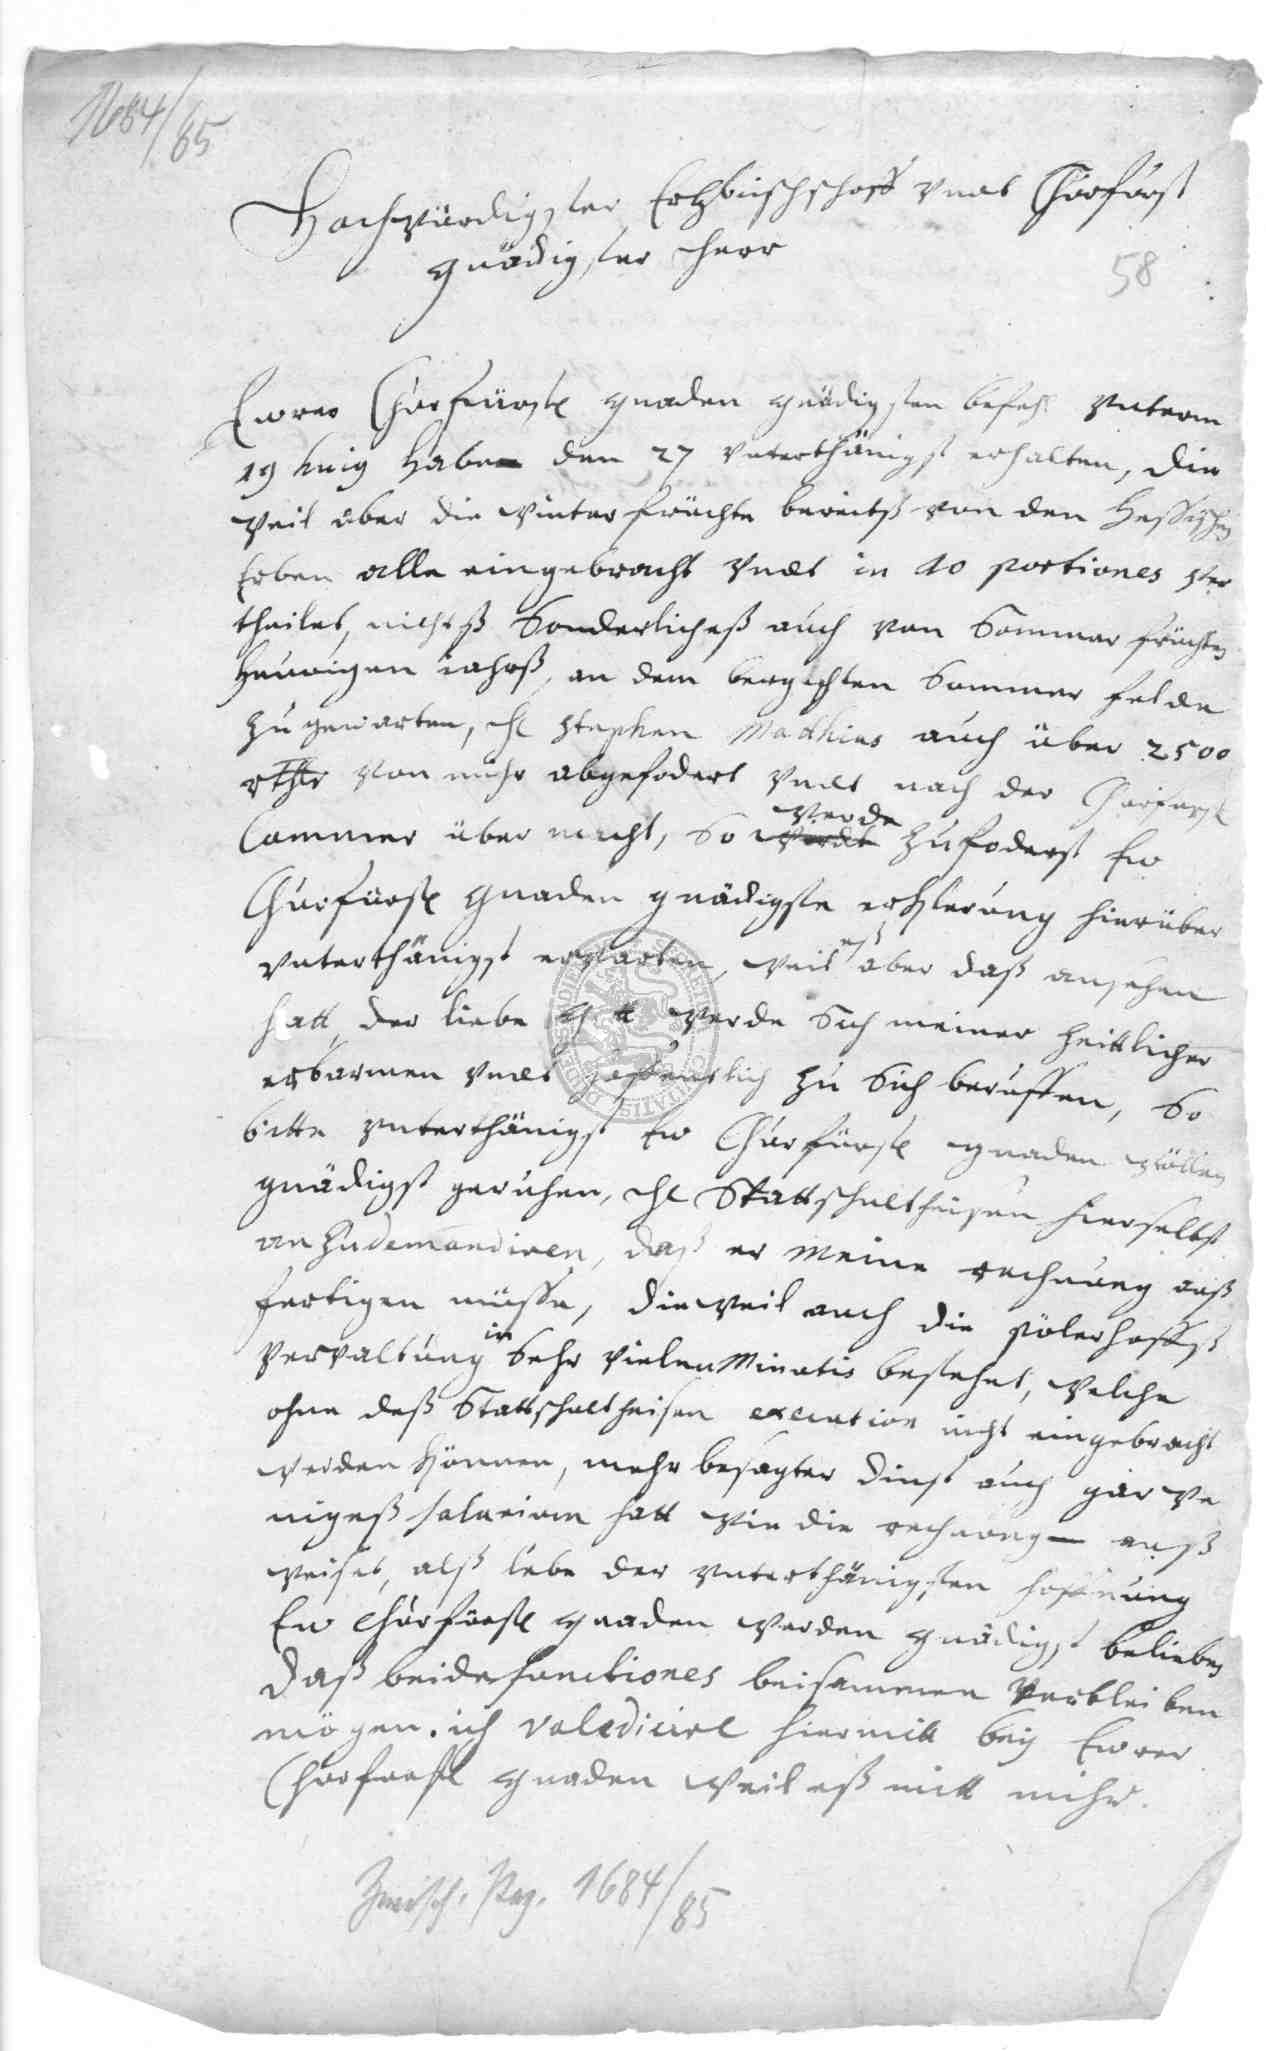 1684/85
Hochwürdigster Ertzbischschoff vndt Churfürst
gnädigster Herr
58
Ewrer Churfürstl gnaden gnädigsten befehl vnterm
19 huig habe den 27 vnterthänigst erhalten, die
weil aber die winter früchte bereitß von den Hessischen
Erben alle eingebracht vndt in 10 portiones ver
theilet, nichtß Sonderlicheß auch von Sommer früchten
heurigen iahrß, an dem bergichten Sommer felde
zu gewarten, H Stephen Matthias auch über 2500
rthlr von mihr abgefodert vndt nach der Churfürstl
Cammer über macht, So werde zufoderst Ew
Churfürstl gnaden gnädigste erklerung hierüber
vnterthänigst erwarten, weil eß aber daß ansehen
hatt, der liebe Gott werde Sich meiner
erbarmen vndt hoffentlich zu Sich beruffen, So
bitte vnterthänigst Ew Churfürstl gnaden wöllen
gnädigst geruhen, H Stattschultheisen hierselbst
an zu demandiren, daß er meine rechnung auß
fertigen müsse, dieweil auch die hoffß
verwaltung in Sehr vielen Minutis bestehet, welche
ohne deß Stattschultheisen execution nicht eingebracht
werden können, mehr besagter dinst auch gar we
nigeß salarium hatt wie die rechnung auß
weiset, alß lebe der vnterthänigsten hoffnung
Ew Churfürstl gnaden werden gnädigst belieben
daß beide functiones beisammen verbleiben
mögen. ich valedicire hiermitt beÿ Ewrer
Churfürstl gnaden weil eß mitt mihr.
1684/85